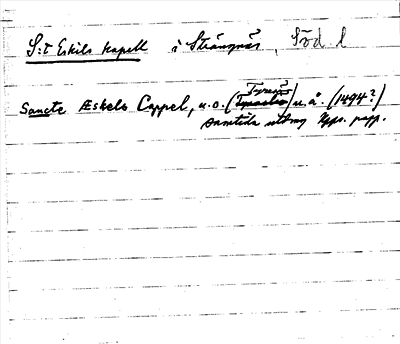 S:t Eskils kapell i Strängnäs, Söd. l
Sancte Æskels Cappel, u.o. (Tyresö) u.å. (1494?)
samtida utdrag Upps. papp.